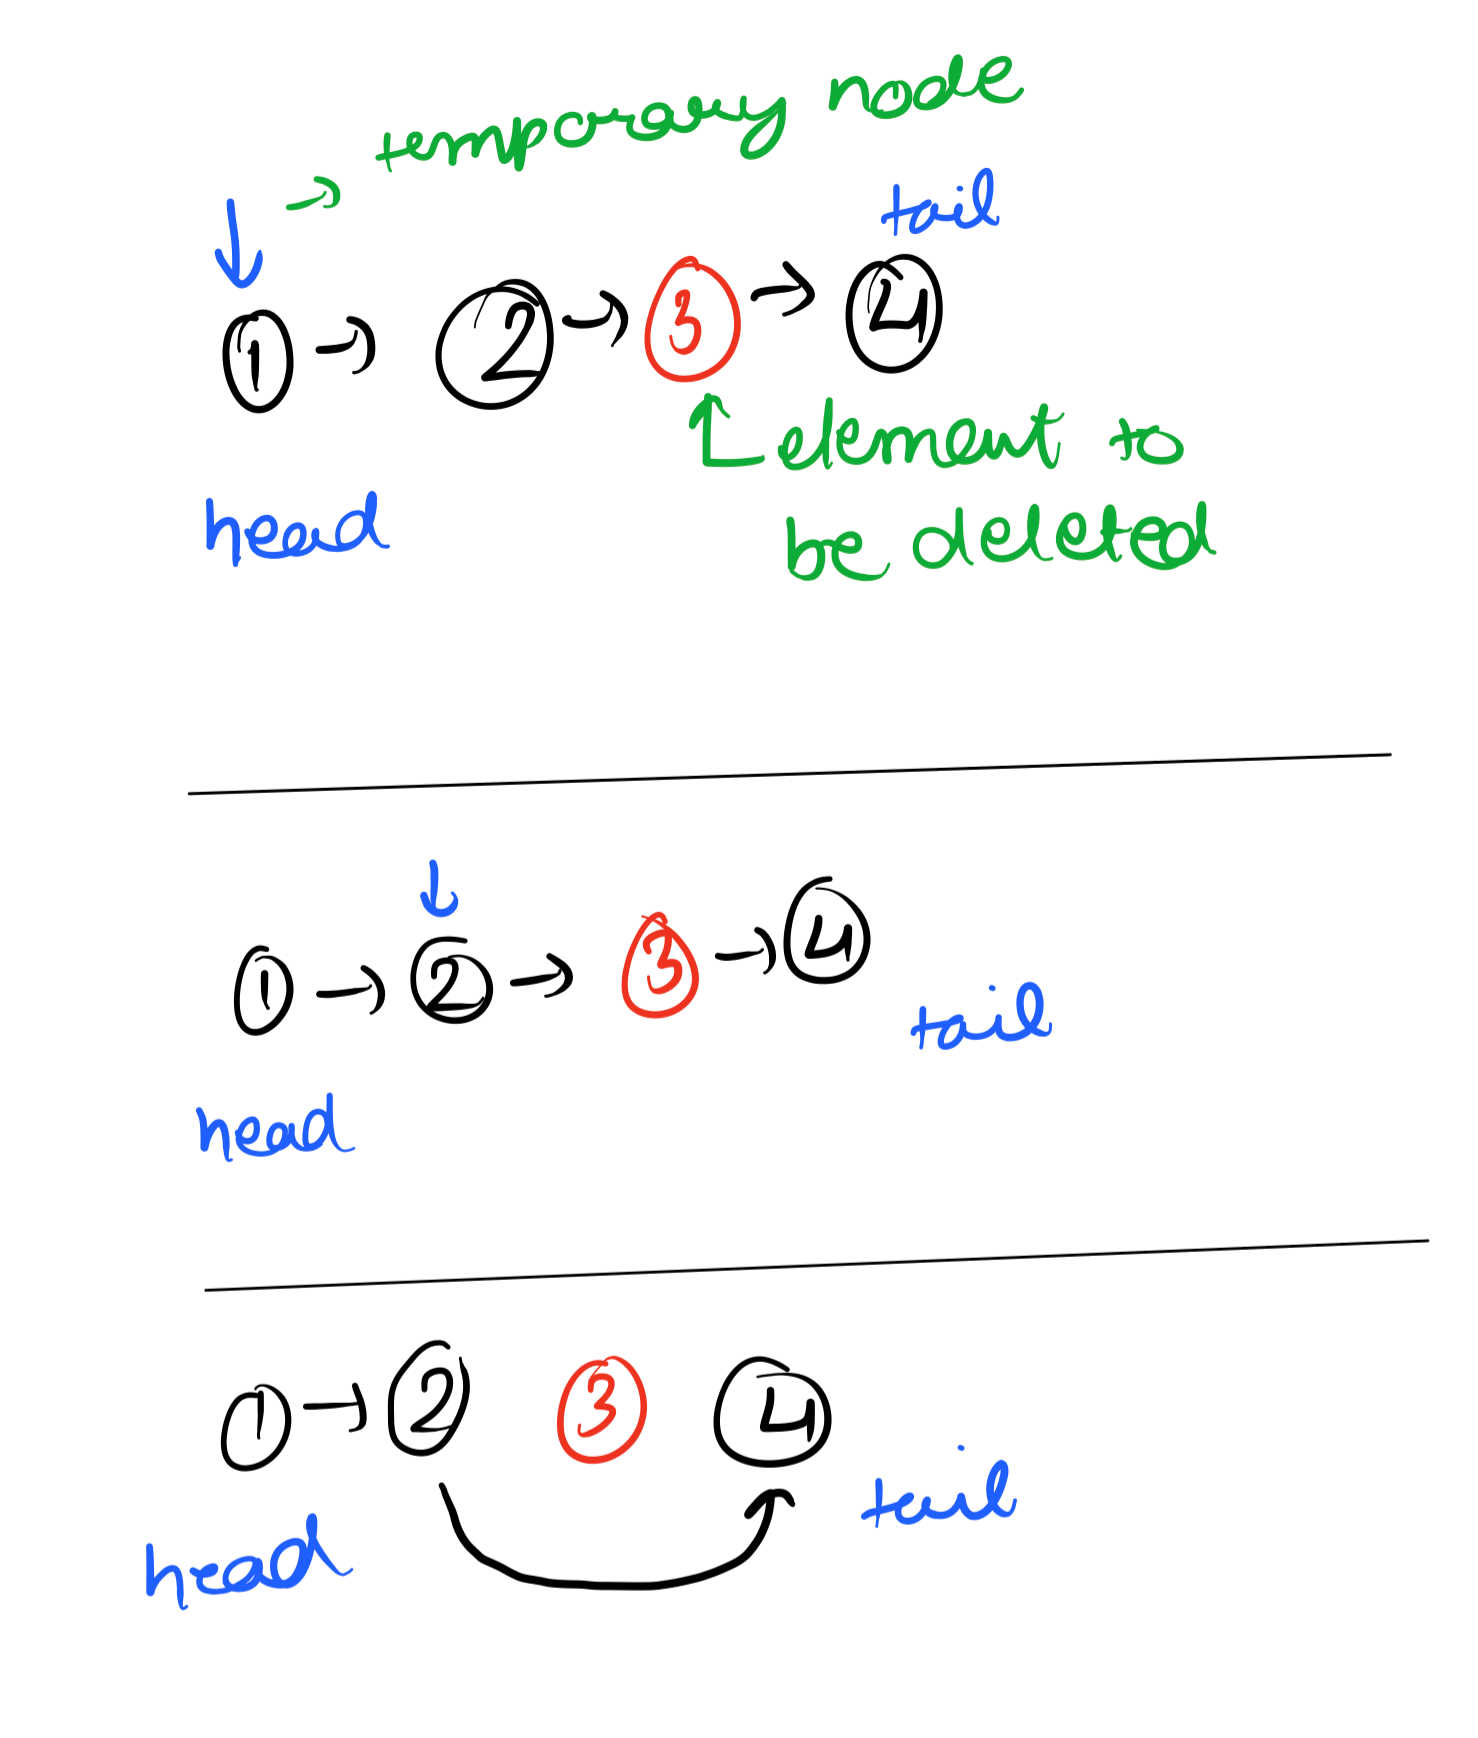 → temporary node
tail
1 → 2 → 3 → 4
element to
be deleted
head
1 → 2 → 3 → 4
tail
head
1 → 2 3 4
tail
head